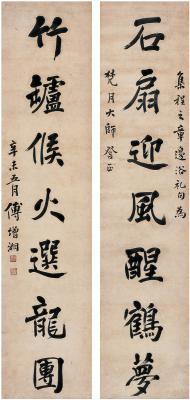 石扇迎風醒鶴夢
集程之章邊浴礼句為
梵月大師登正
竹罏候火選龍團
辛未五月傅增湘